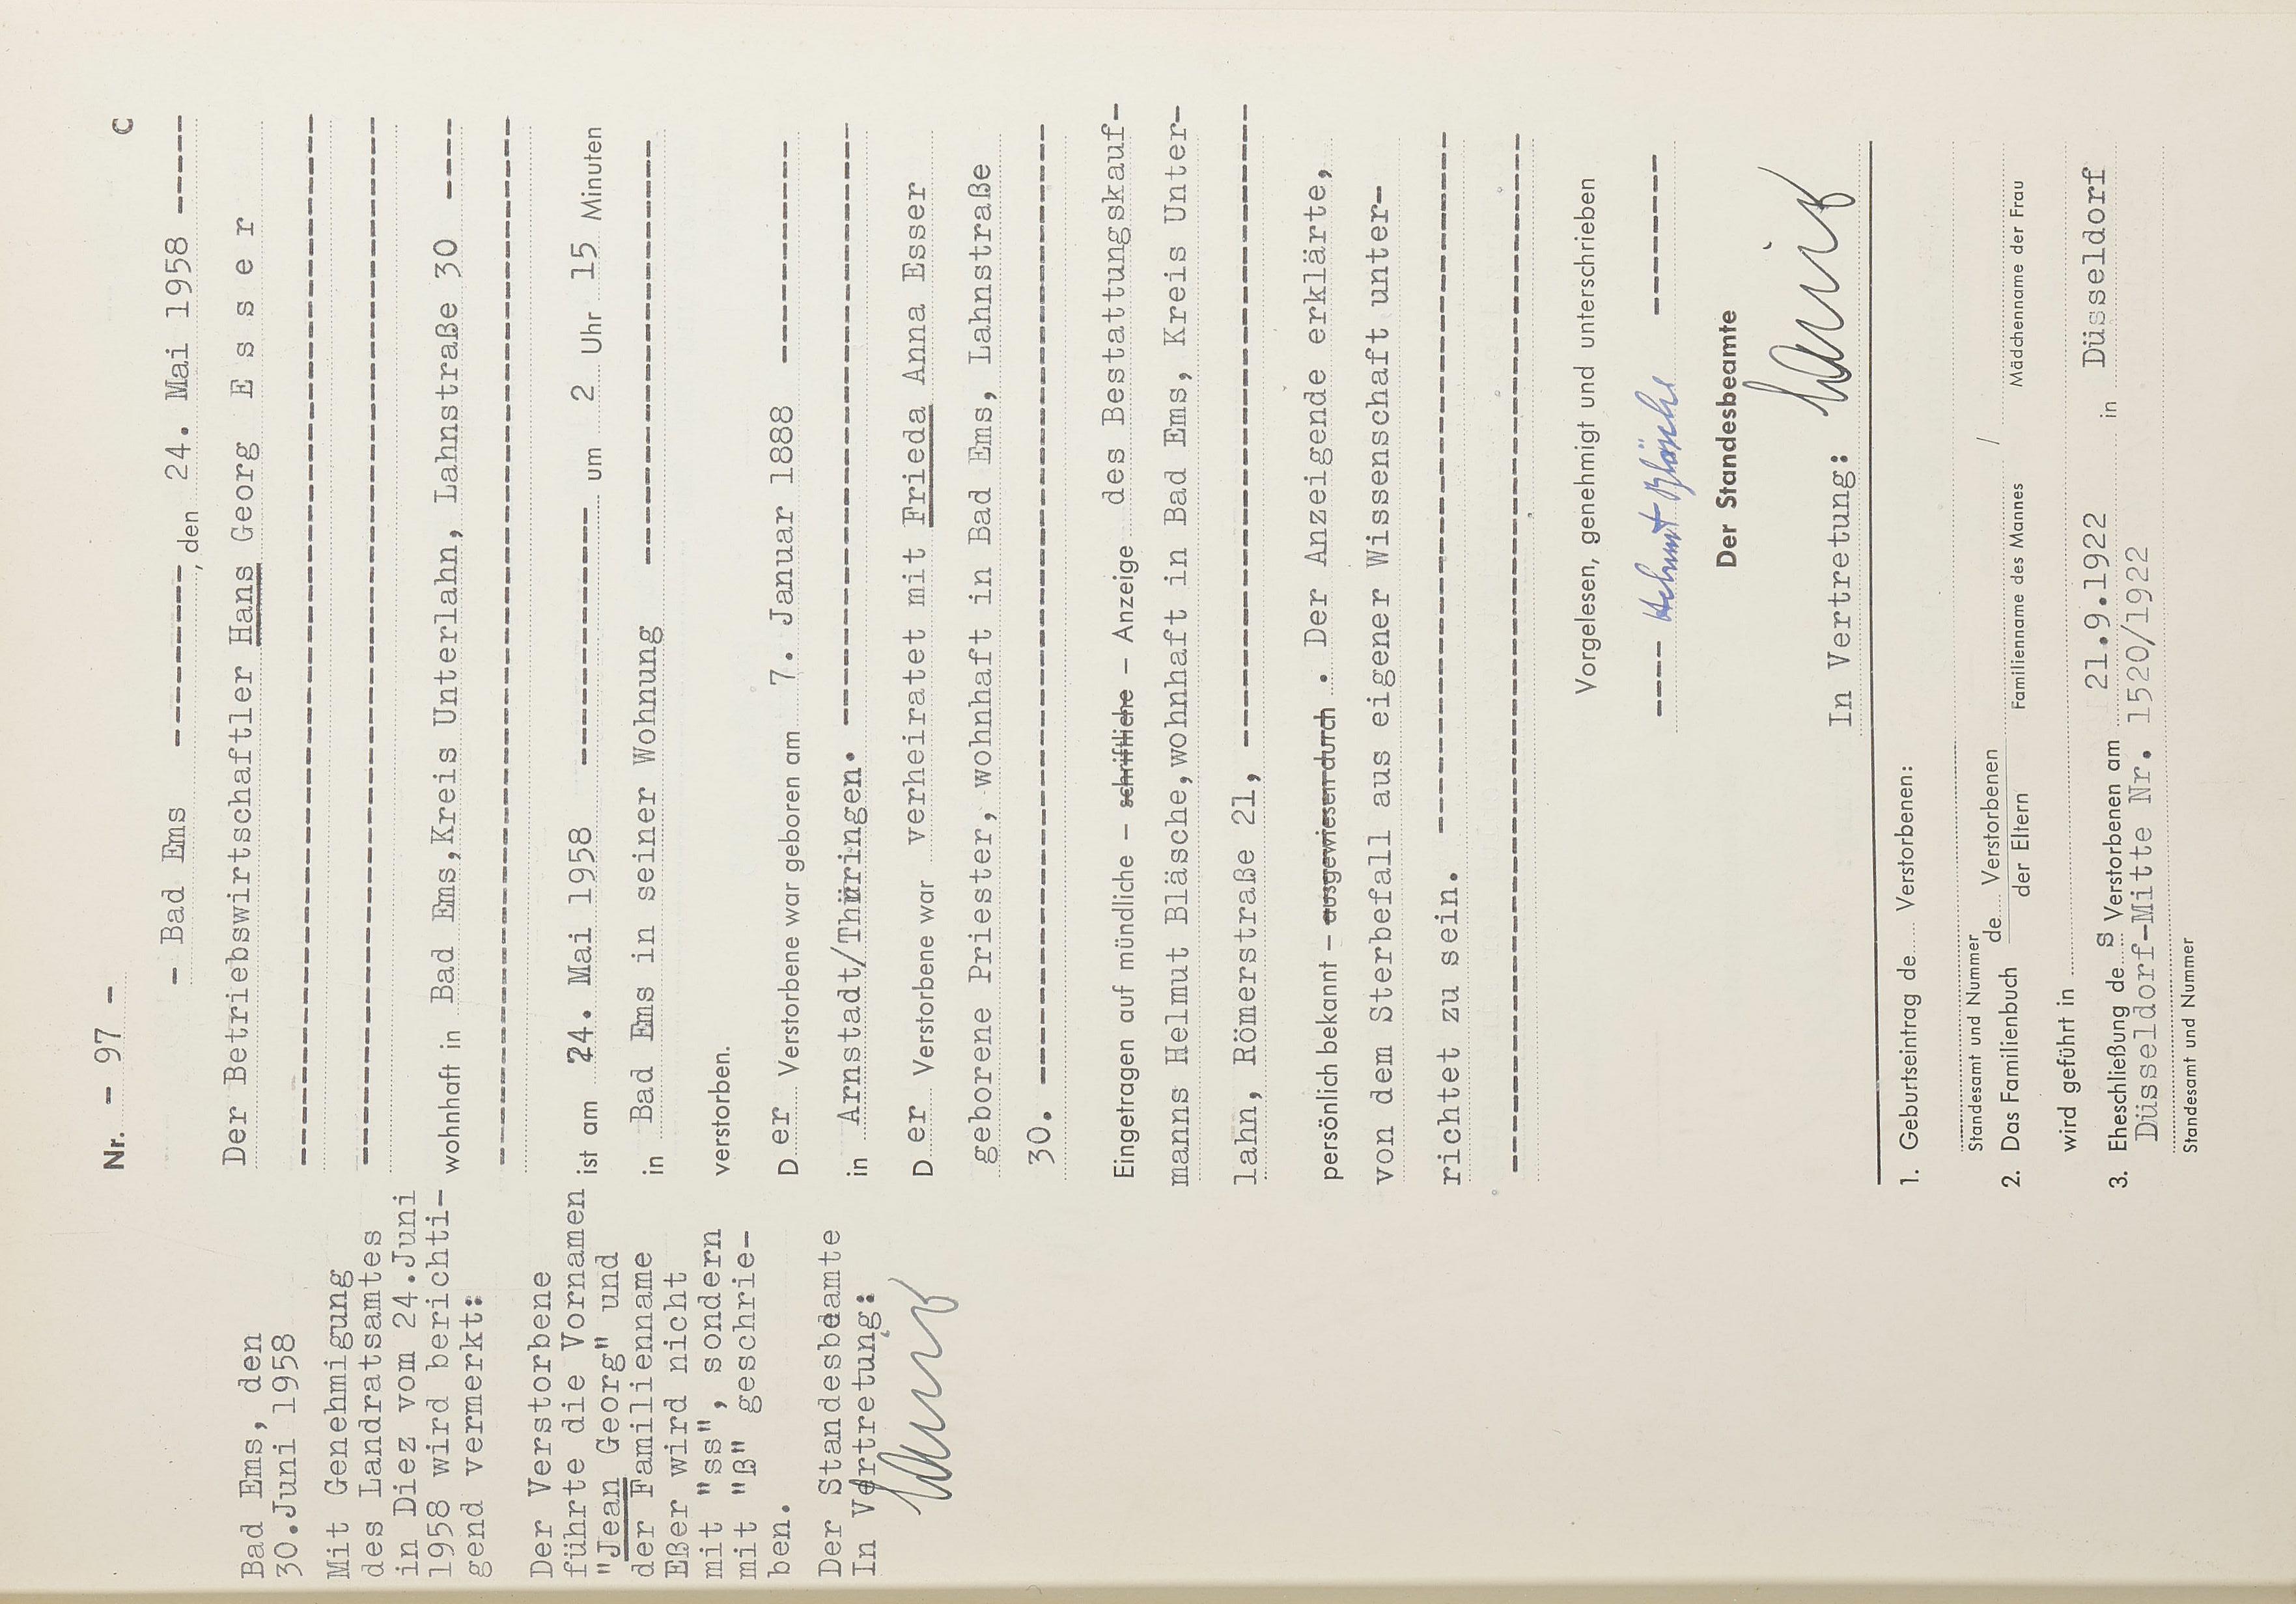 C
Nr. - 97 -
- Bad Ems ----------, den 24. Mai 1958 ------
Der Betriebswirtschaftler Hans Georg E s s e r
wohnhaft in Bad Ems,Kreis Unterlahn, Lahnstraße 30 -----
ist am 24. Mai 1958 ---------------- um 2 Uhr 15 Minuten
in Bad Ems in seiner Wohnung ---------------------------
verstorben.
Der Verstorbene war geboren am 7. Januar 1888 --------------
in Arnstadt/Thüringen. ---------------------------------
Der Verstorbene war verheiratet mit Frieda Anna Esser
geborene Priester, wohnhaft in Bad Ems, Lahnstraße
30. ----------------------------------------------------
Eingetragen auf mündliche – schriftliche – Anzeige des Bestattungskauf-
manns Helmut Bläsche,wohnhaft in Bad Ems, Kreis Unter-
lahn, Römerstraße 21, ----------------------------------
persönlich bekannt – ausgewiesen durch . Der Anzeigende erklärte,
von dem Sterbefall aus eigener Wissenschaft unter-
richtet zu sein. ---------------------------------------
Vorgelesen, genehmigt und unterschrieben
---- Helmut Bläsche ----------
Der Standesbeamte
In Vertretung:
1. Geburtseintrag de Verstorbenen:
Standesamt und Nummer
2. Das Familienbuch de Verstorbenen /
der Eltern Familienname des Mannes Mädchenname der Frau
wird geführt in
3. Eheschließung des Verstorbenen am 21.9.1922 in Düsseldorf
Düsseldorf-Mitte Nr. 1520/1922
Standesamt und Nummer
Bad Ems, den
30.Juni 1958
Mit Genehmigung
des Landratsamtes
in Diez vom 24.Juni
1958 wird berichti-
gend vermerkt:
Der Verstorbene
führte die Vornamen
"Jean Georg" und
der Familienname
Eßer wird nicht
mit "ss", sondern
mit "ß" geschrie-
ben.
Der Standesbeamte
In Vertretung: